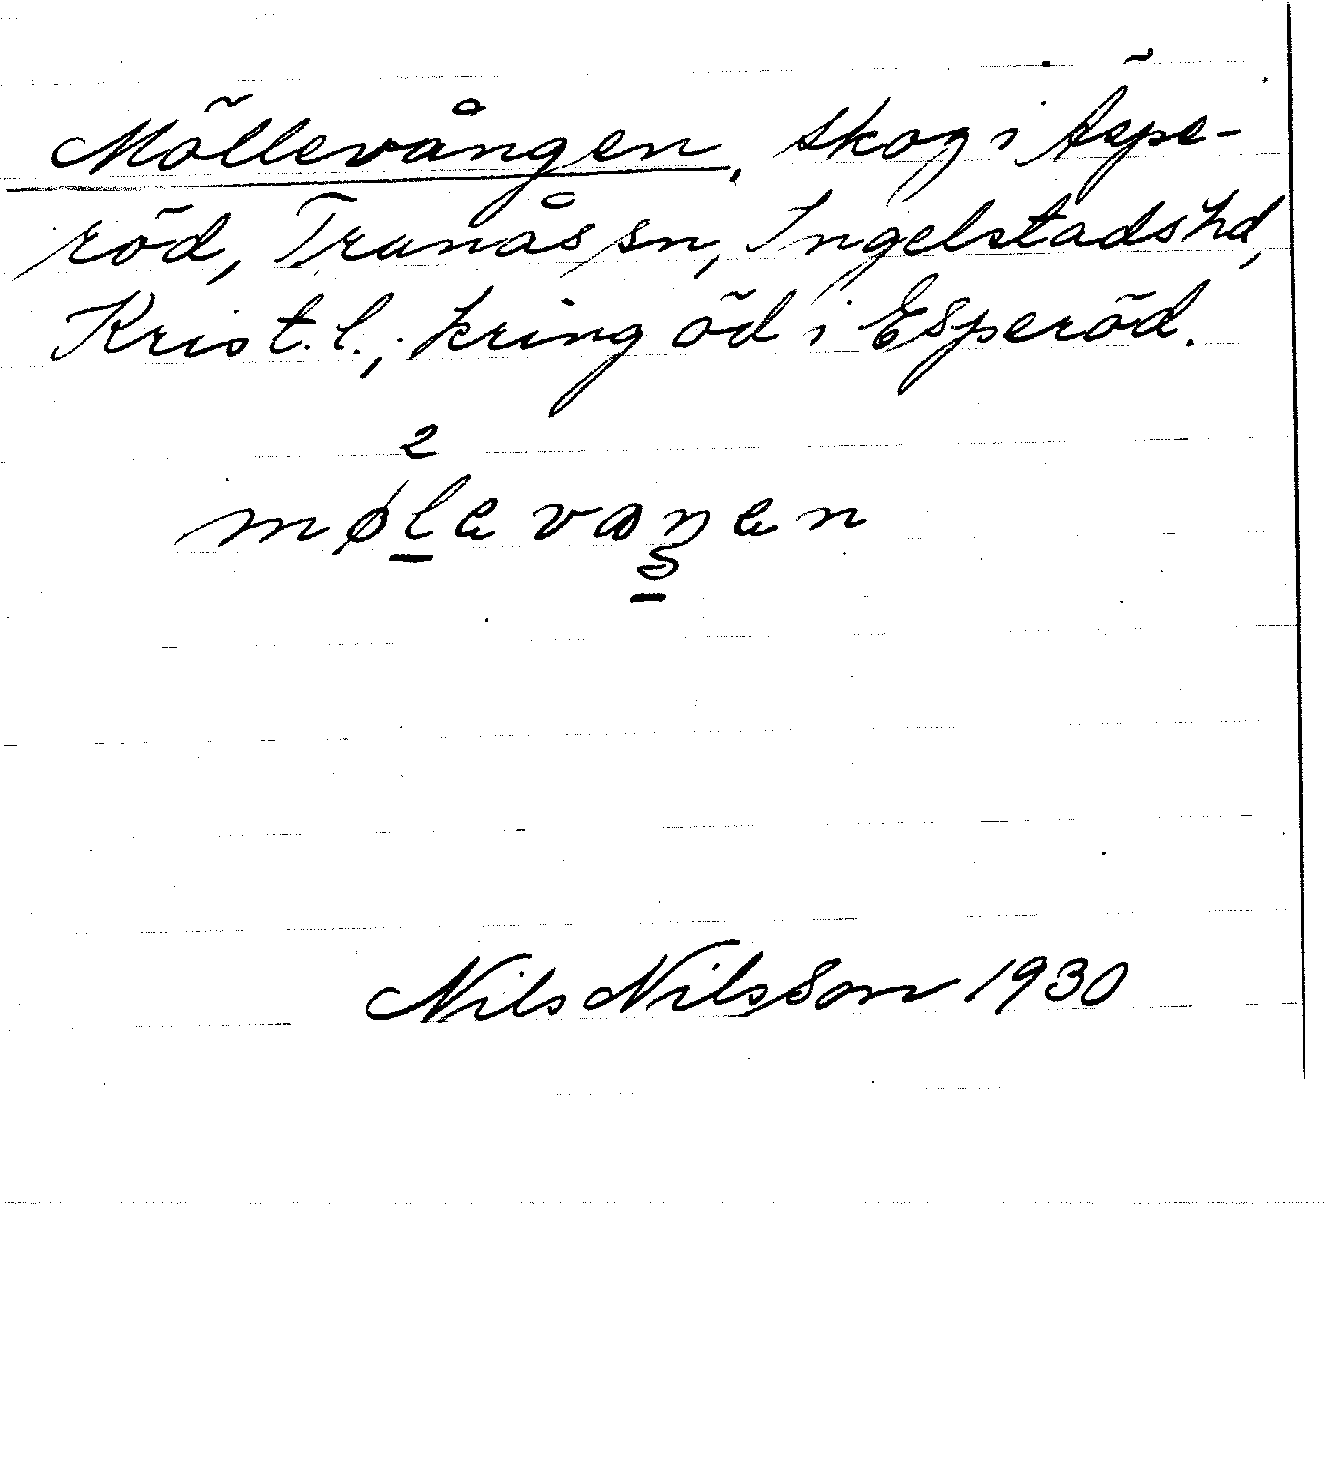 Möllevången, skog i Äspe-
röd, Tranås sn, Ingelstads hd,
Krist. l.; kring öd i Esperöd.
2
møle vaŋen
Nils Nilsson 1930